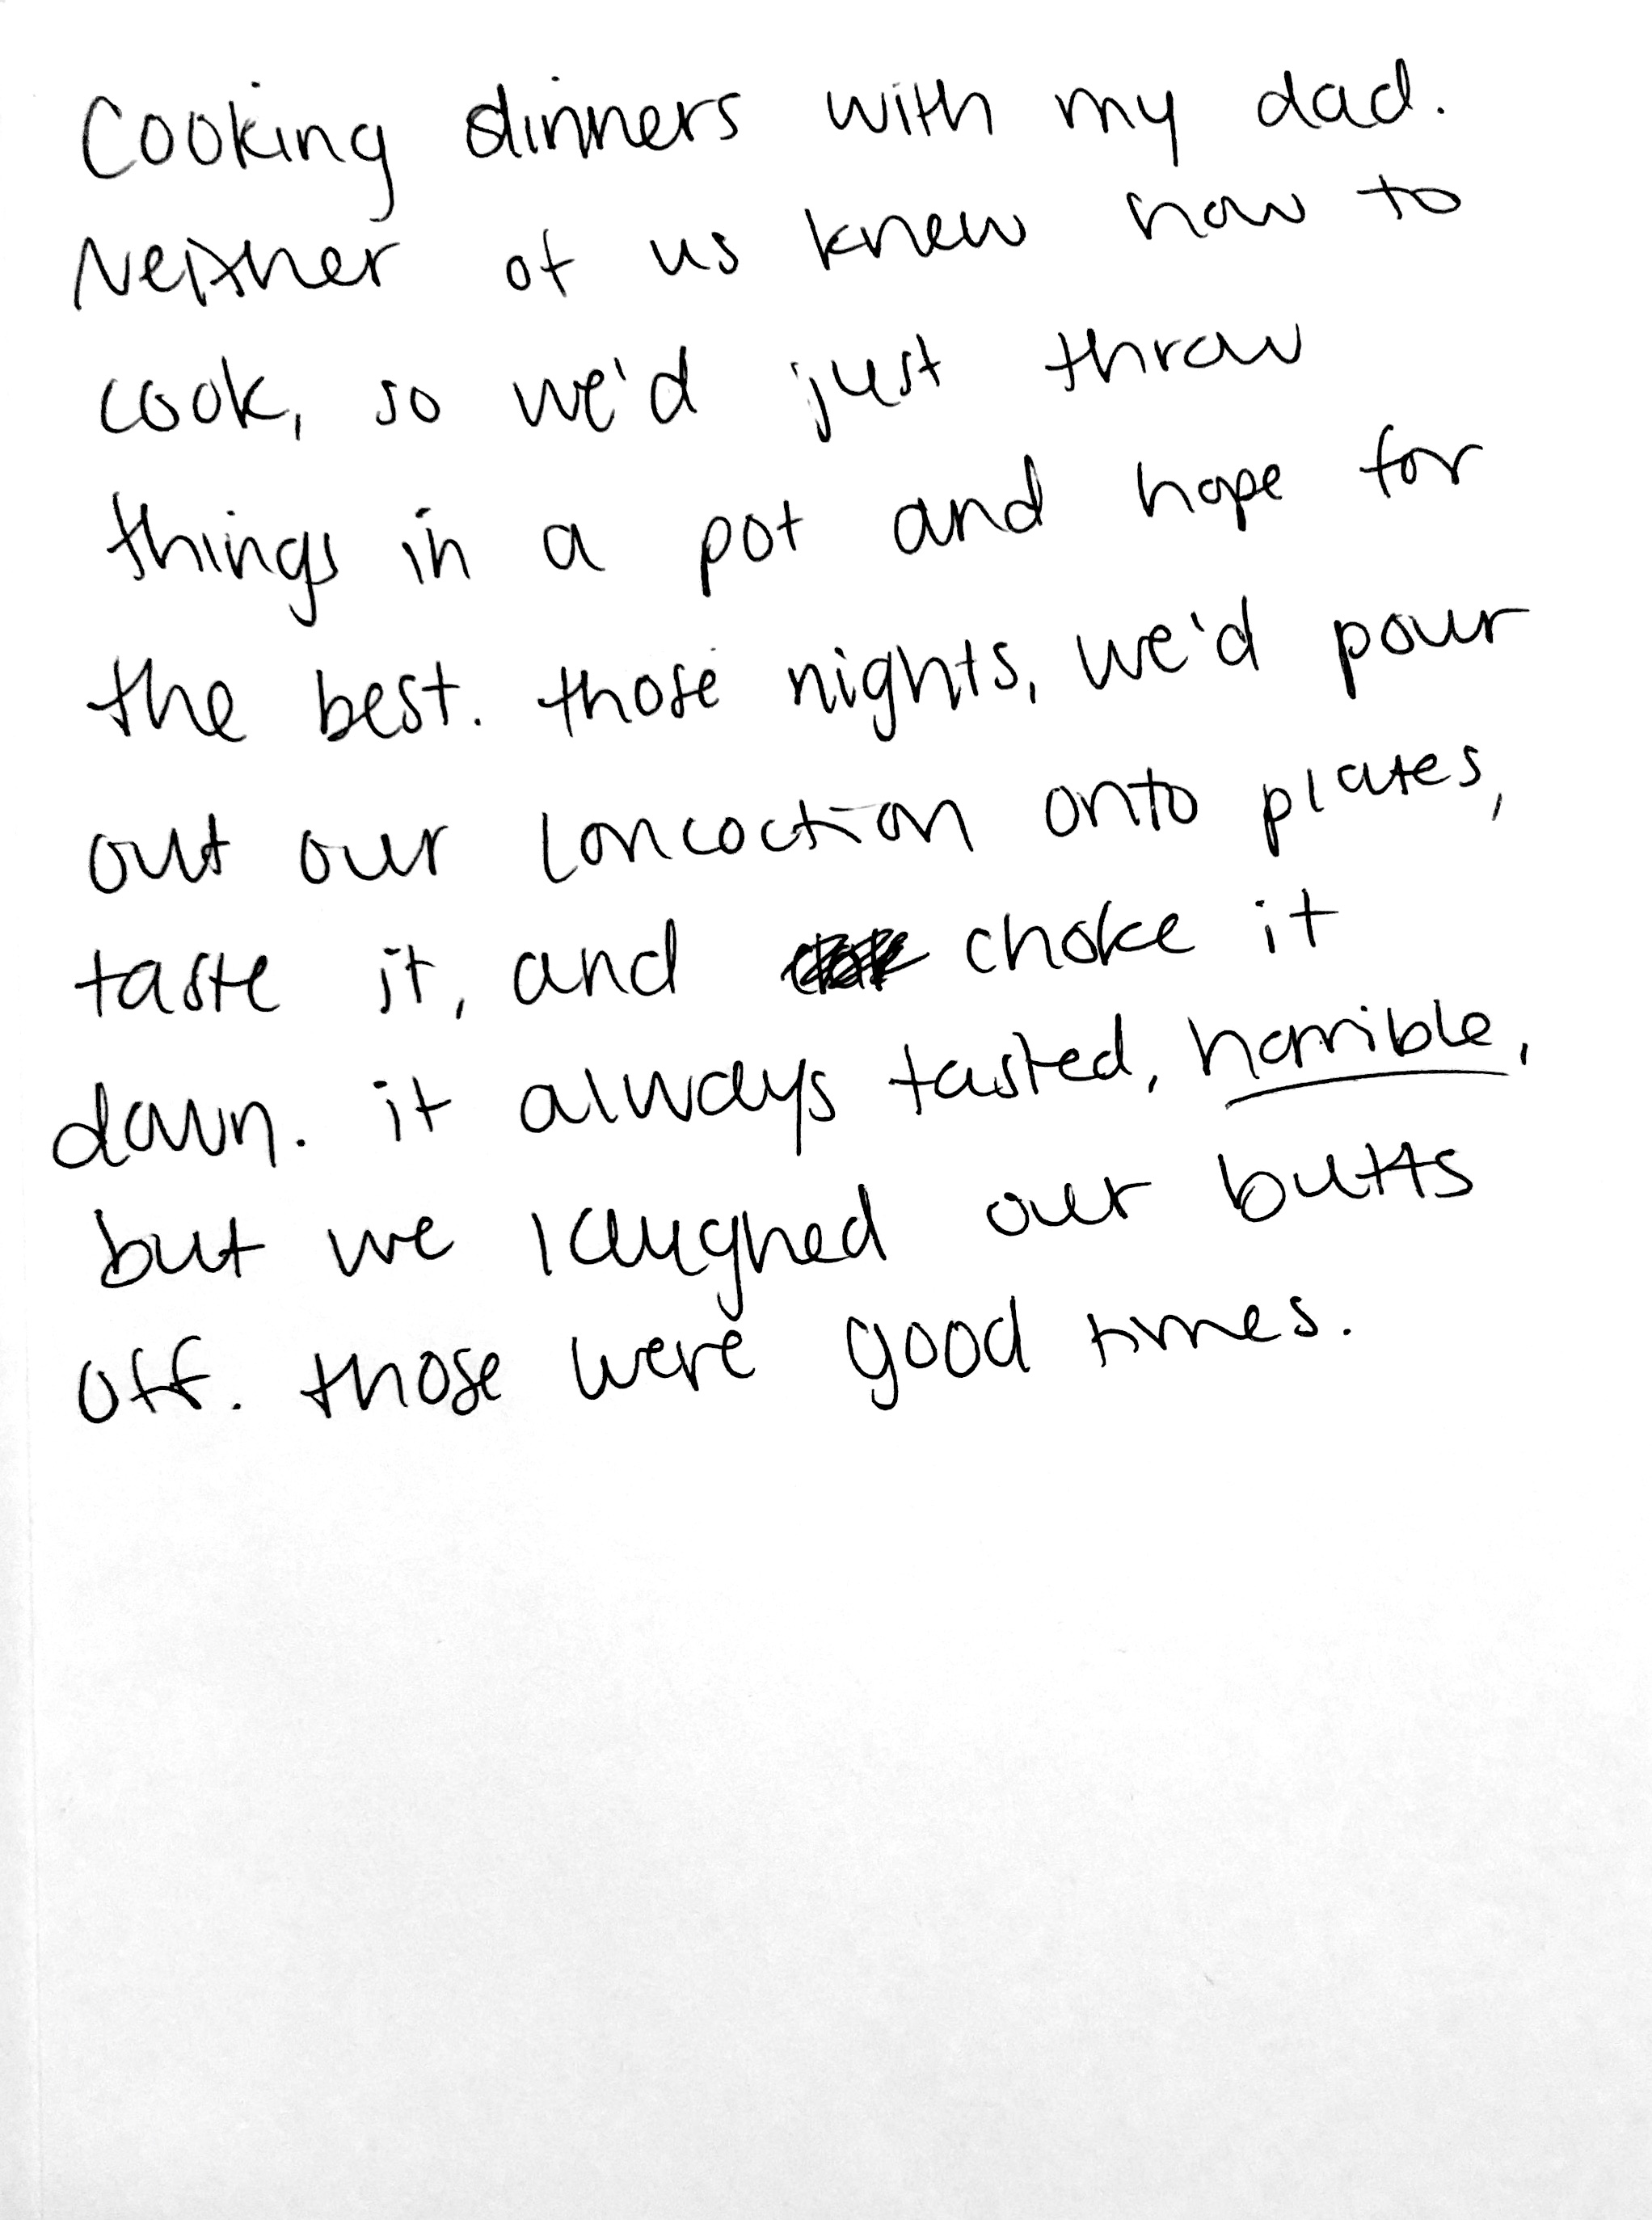 Cooking dinners with my dad.
Neither of us knew how to
cook, so we'd just throw
things in a pot and hope for
the best. those nights, we'd pour
out our concoction onto plates,
taste it, and choke it
down. it always tasted, horrible,
but we laughed our butts
off. those were good times.